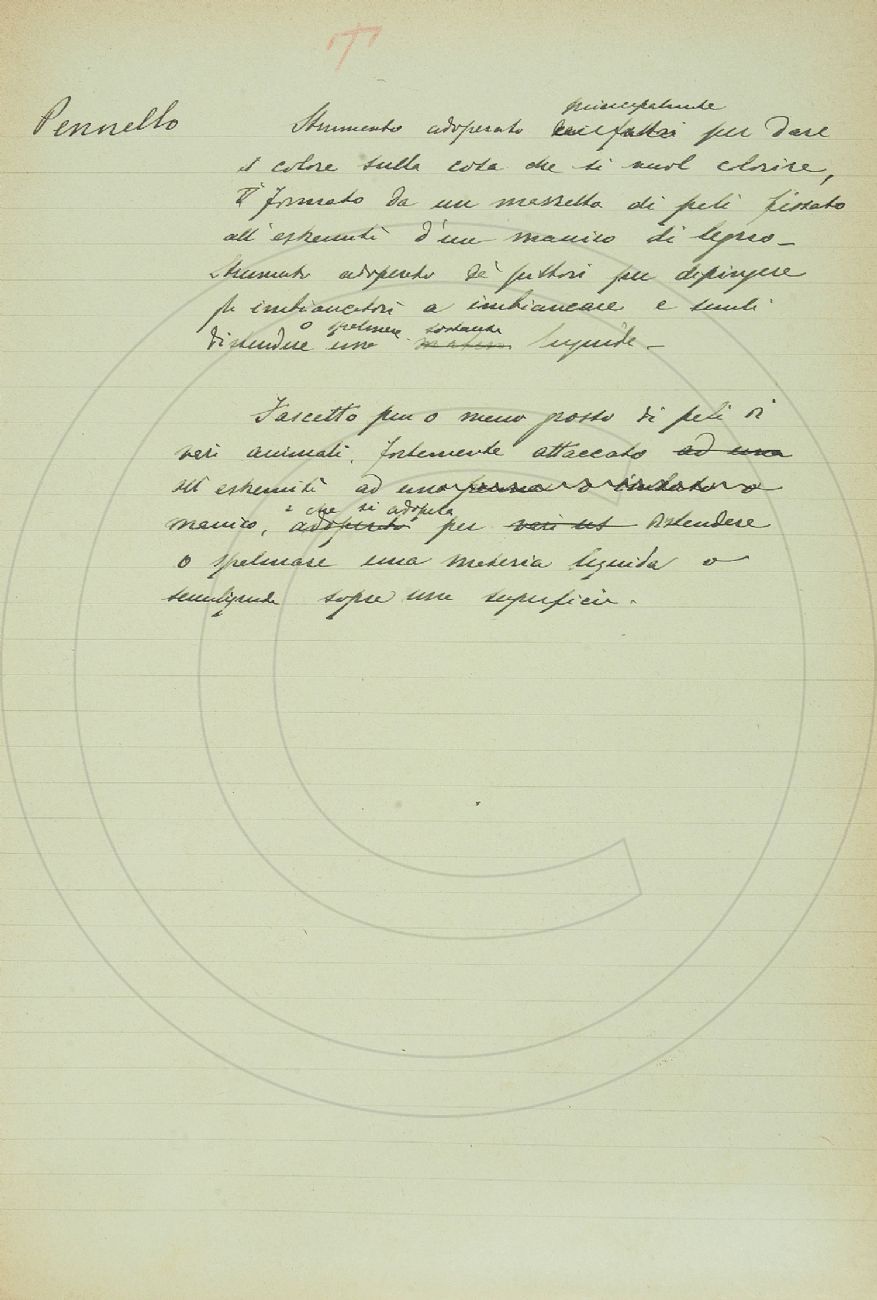 Pennello
principalmente
Strumento adoperato per dare
il colore sulla cosa che si vuol colorire,
È formato da un mazzetto di peli fissato
all'estremità d'un manico di legno –
Strumento adoperato da' pittori per dipingere
gli imbiancatori a imbiancare e simili
o spalmare sostanza
distendere una liquida –
Fascetto più o meno grosso di peli di
vari animali, fortemente attaccato ad una
all'estremità ad una o
che si adopela
manico, adoperato per distendere
o spalmare una materia liquida o
semiliquida sopra una superficie.